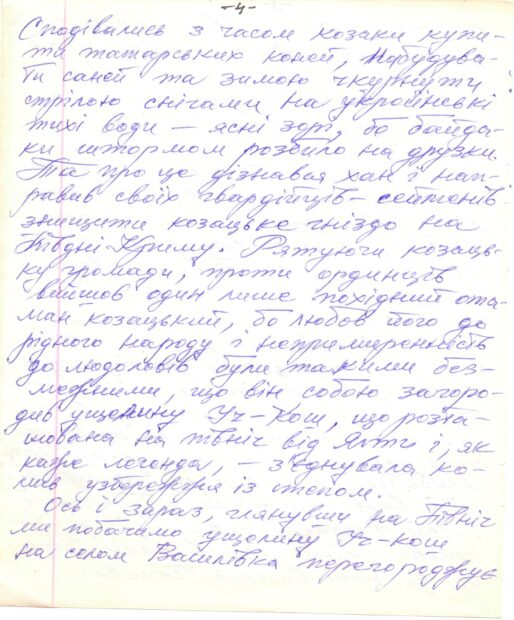 -4-
Сподівались з часом козаки купи-
ти татарських коней, побудува-
ти саней та зимою чкурнути
стрілою снігами на українські
тихі води – ясні зорі, бо байда-
ки штормом розбило на друзки.
Та про це дізнався хан і нап-
равив своїх гвардійців-сейменів
знищити козацьке гніздо на
Півдні Криму. Рятуючи козаць-
ку громаду, проти ординців
вийшов один лише похідний ота-
ман козацький, бо любов його до
рідного народу і непримиренність
до людоловів були такими без-
межними, що він собою загоро-
див ущелину Уч-Кош, що розта-
шована на північ від Ялти і, як
каже легенда, – з'єднувала ко-
лись узбережжя із степом.
Ось і зараз, глянувши на Північ
ми побачимо ущелину Уч-Кош
на селом Василівка перегороджує